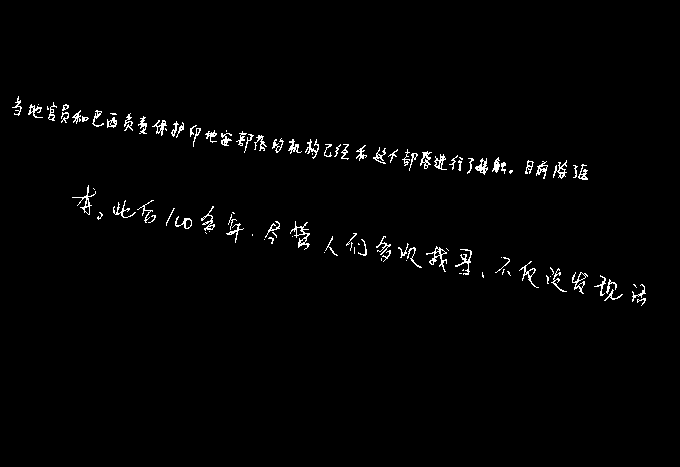 当地官员和巴西负责保护印地安部落的机构已经和这个部落进行了接触。目前除了
本。此后100多年,尽管人们多次找寻、不仅没发现活